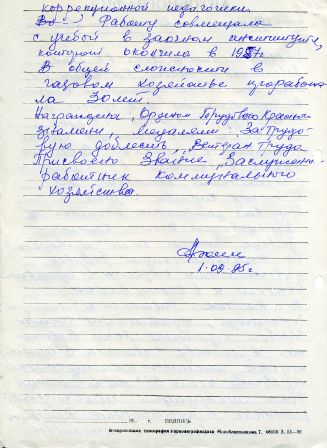 коррекционной педагогики.
Работу совмещала
с учебой в заочном институте,
который окончила в 1957г.
В общей сложности в
газовом хозяйстве проработа-
ла 30 лет.
Награждена, Орденом Трудового Красного
Знамени, медалями: За Трудо-
вую доблесть, Ветеран Труда
Присвоено Звание "Заслужено
работник коммунального
хозяйства.
1.09.95г.
19 г. ПОДПИСЬ